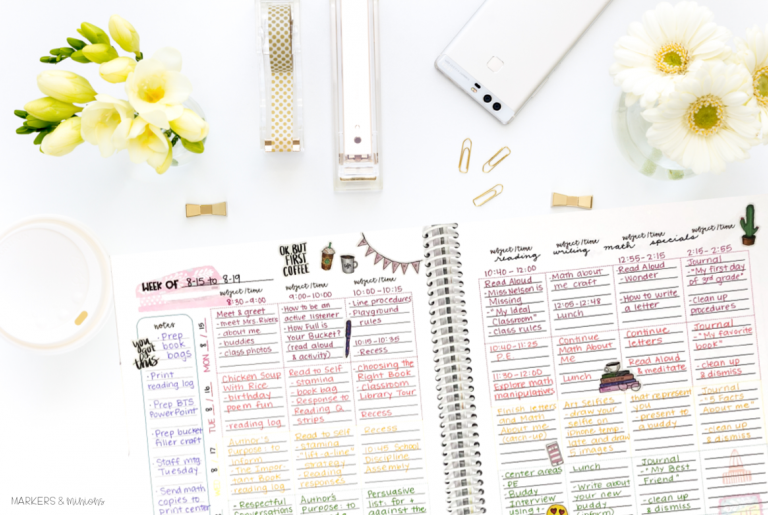 OK, BUT
FIRST
COFFEE
WEEK OF 8-15 to 8-19
notes
Prep
book
bags
you
got
this
- Print
reading log
- Prep BTS
PowerPoint
- Prep bucket
filler craft
- Staff mtg
Tuesday
- Send math
copies to
print center
MON 8/15
TUE 8/16
subject/time
8:50-9:00
Meet & greet
- meet Mrs. Rivers
- about me
- buddies
- class photos
Chicken Soup
With Rice
- birthday
poem fun
- reading log
Author's
Purpose: to
inform
The Impor-
tant Book
reading log
- Respectful
conversations
subject/time
9:00-10:00
- How to be an
active listener
- How Full is
Your Bucket?
(read aloud
& activity)
Read to Self
- stamina
- book bag
- Response to
Reading Q.
strips
Read to self
- stamina
strategy
- Reading
response
Author's
Purpose: to
subject/time
10:00-10:15
- Line procedures
- Playground
rules
10:15-10:35
- Recess
Choosing the
Right Book
Classroom
Library Tour
Recess
Recess
10:45 School
Discipline
Assembly
Persuasive
list: for +
against the
subject/time
reading
10:40-12:00
Read Aloud
- Miss Nelson is
Missing
- "My Ideal
Classroom"
- Class rules
10:40-11:25
P.E.
11:30-12:00
Explore math
manipulatives
Finish letters
and Math
About me
(catch-up)
- Center areas
PE
- Buddy
Interview
subject/time
writing
Math about
me craft
12:05-12:48
Lunch
Continue
Math About
Me
Lunch
Art Selfies
draw your
selfie on
iphone temp-
late and draw
5 images
Lunch
- Write about
your new
buddy
(inform)
subject/time
math
12:55-2:15
Read Aloud
- Wonder
- How to write
a letter
Continue
letters
Read Aloud
& meditate
that represent
you
present to
a buddy
Journal
- "My Best
Friend"
- clean up
& dismiss
subject/time
specials
2:15-2:55
Journal
- "My first day
of 3rd grade"
- clean up
procedures
Journal
- "My favorite
book"
- clean up
& dismiss
Journal
- "5 Facts
About me"
- clean up
& dismiss
MARKERS & minions